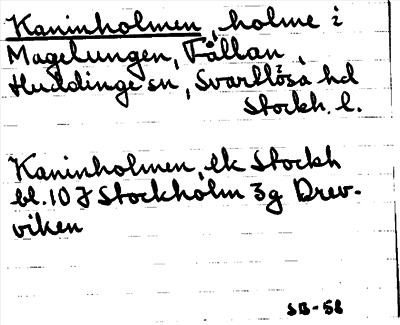 Kaninholmen, holme i
Magelungen, Fållan,
Huddinge sn, Svartlösa hd
Stockh. l.
Kaninholmen, ek Stockh
bl. 10 J Stockholm 3g Drev-
viken
SB-58